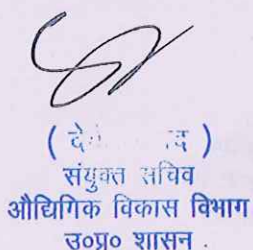 संयुक्त सचिव
औद्यिगिक विकास विभाग
उ०प्र० शासन